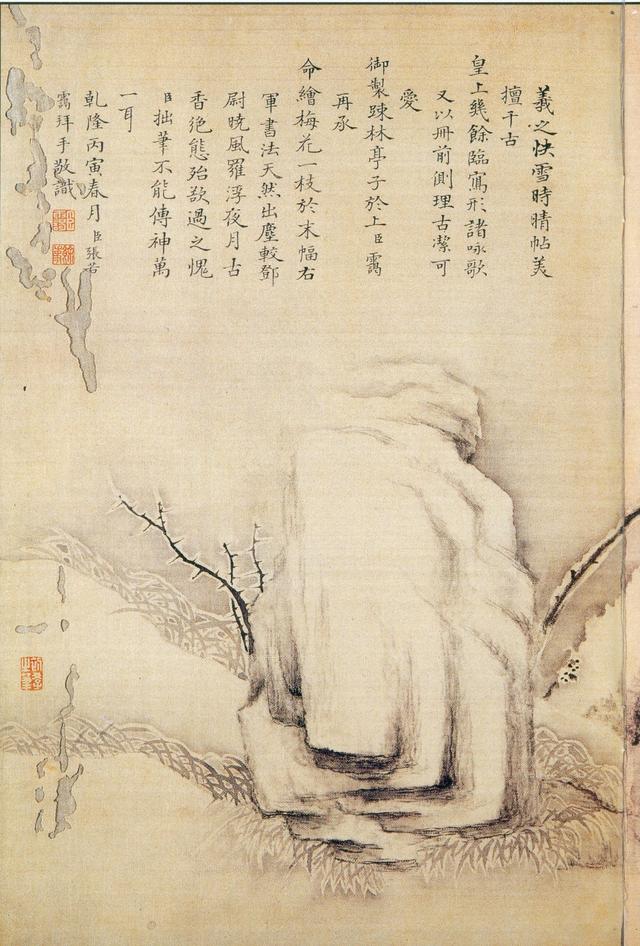 羲之快雪時晴帖美
擅千古
皇上幾餘臨寫形諸咏歌
又以冊前側理古潔可
愛
御製踈林亭子於上臣靄
再承
命繪梅花一枝於末幅右
軍書法天然出塵較鄧
尉晓風羅浮夜月古
香絶態殆欲過之愧
臣拙筆不能傳神萬
一耳
乾隆丙寅春月臣張若
靄拜手敬識